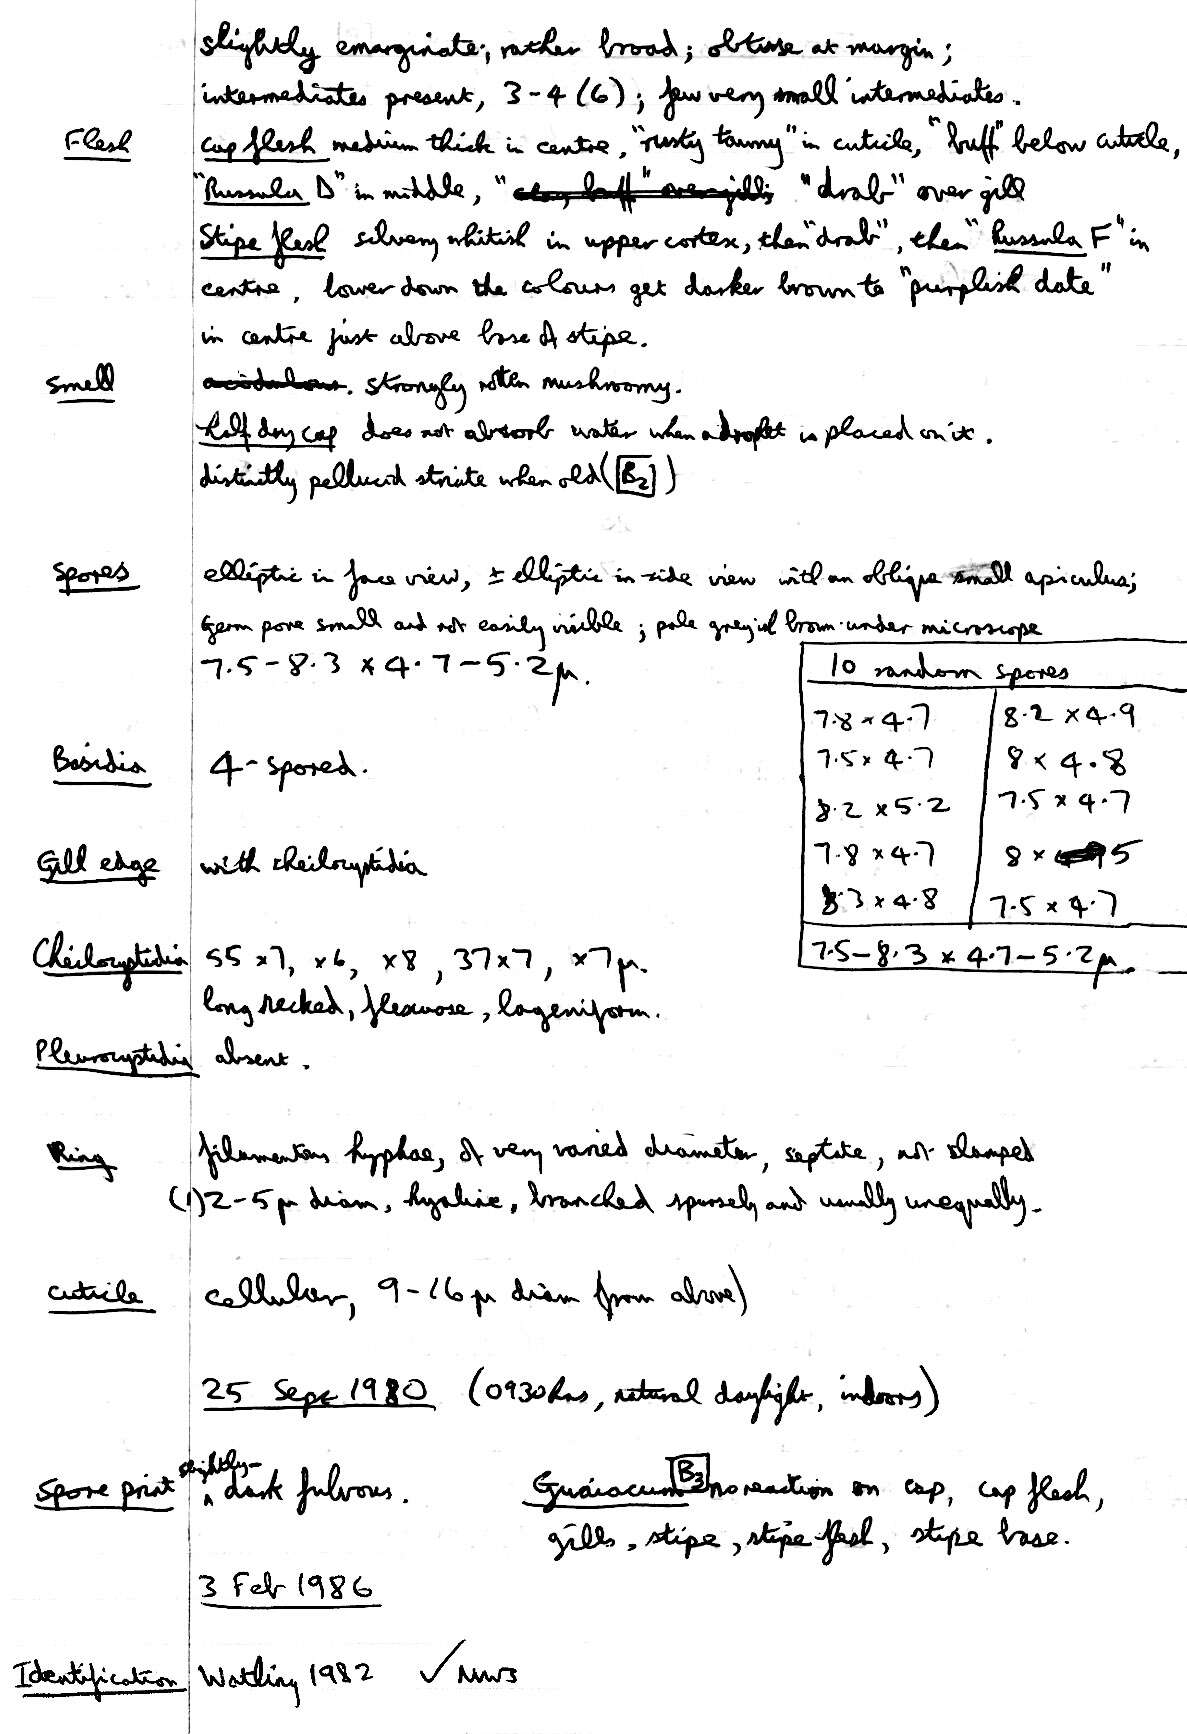 slightly emarginate; rather broad; obtuse at margin;
intermediates present, 3-4 (6); few very small intermediates.
Flesh cap flesh medium thick in centre, "rusty tawny" in cuticle, "buff" below cuticle,
"Russula D" in middle, "clay buff" over gills; "drab" over gill
Stipe flesh silvery whitish in upper cortex, then "drab", then "Russula F" in
centre, lower down the colours get darker brown to "purplish date"
in centre just above base of stipe.
Smell acidulous. strongly rotten mushroomy.
half dry cap does not absorb water when a droplet is placed on it.
distinctly pellucid striate when old (B2)
Spores elliptic in face view, ± elliptic in side view with an oblique small apiculus;
Germ pore small and not easily visible; pale greyish brown under microscope
7.5-8.3 x 4.7-5.2µ.
10 random spores
7.8 x 4.7 8.2 x 4.9
7.5 x 4.7 8 x 4.8
8.2 x 5.2 7.5 x 4.7
7.8 x 4.7 8 x 5
8.3 x 4.8 7.5 x 4.7
7.5-8.3 x 4.7-5.2µ.
Basidia 4-spored.
Gill edge with cheilocystidia
Cheilocystidia 55 x 7, x 6, x 8, 37 x 7, x 7µ.
long necked, flexuose, lageniform.
Pleurocystidia absent.
Ring filamentous hyphae, of very varied diameter, septate, not clamped
(1)2-5µ diam, hyaline, branched sparsely and usually unequally.
cuticle cellular, 9-16µ diam (from above)
25 Sept 1980 (0930hrs, natural daylight, indoors)
Spore print slightly dark fulvous.
Guaiacum B3 no reaction on cap, cap flesh,
gills, stipe, stipe flesh, stipe base.
3 Feb 1986
Identification Watling 1982 ✓